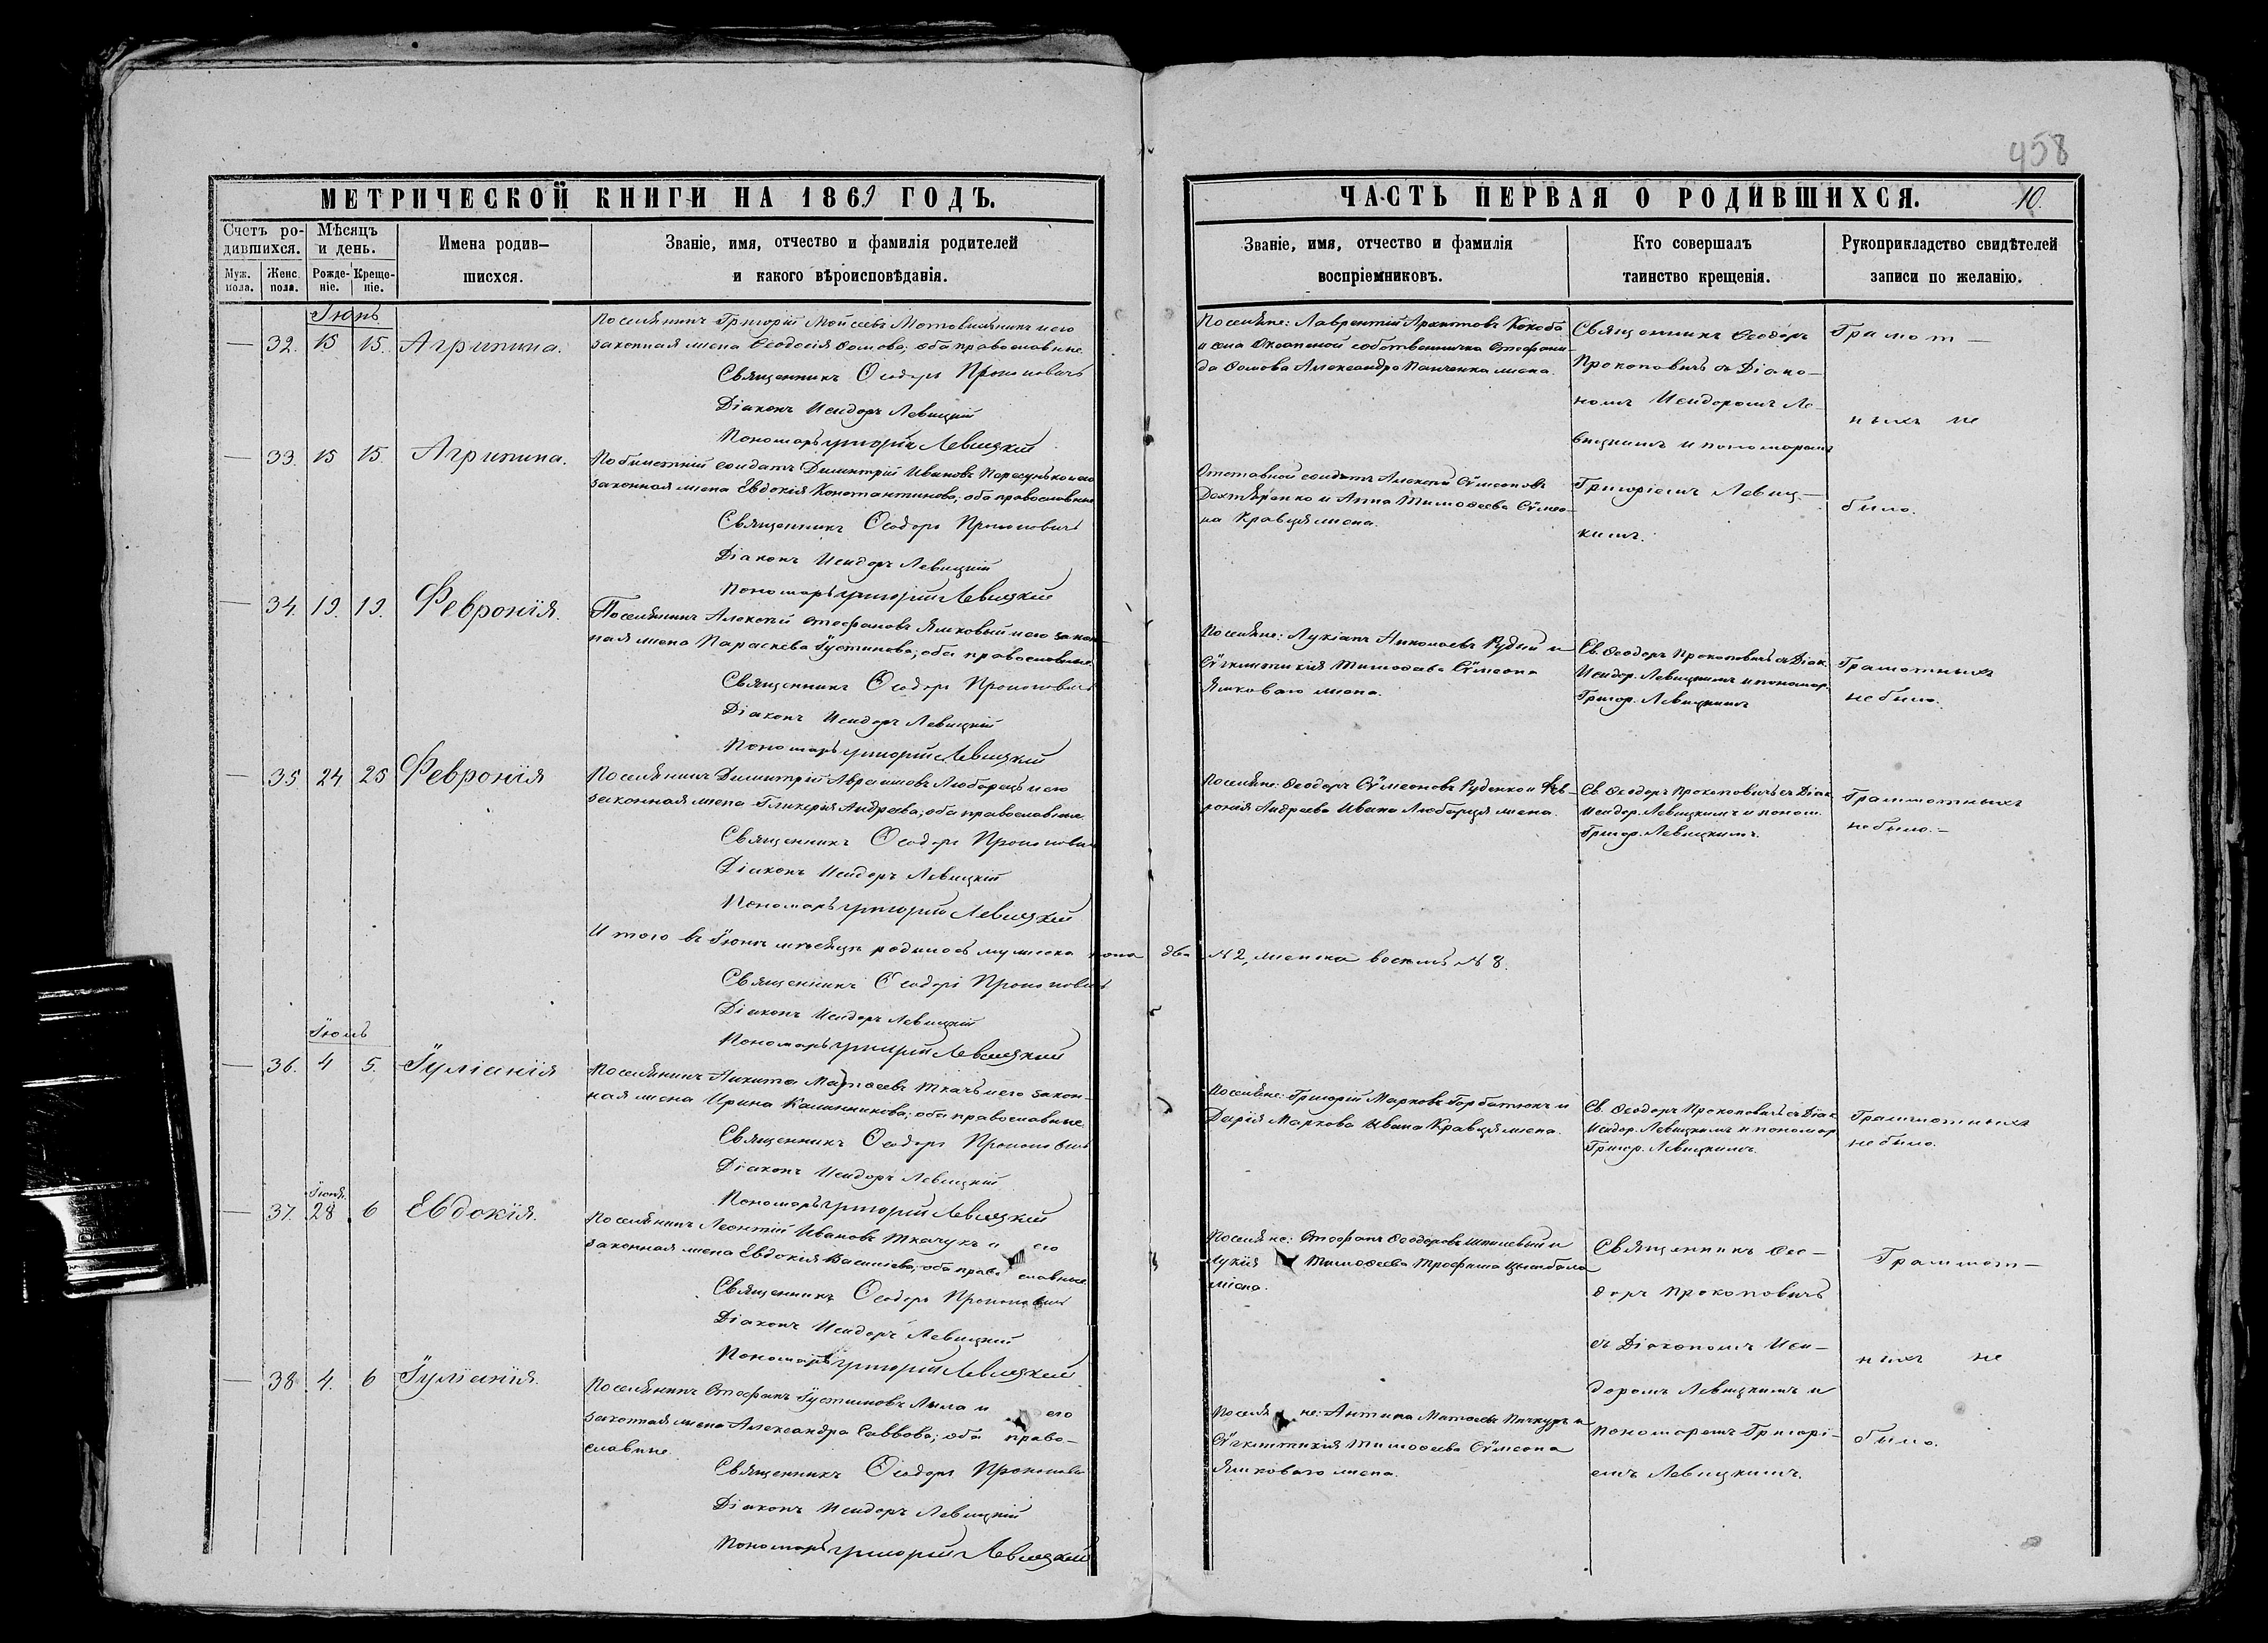 458
МЕТРИЧЕСКОЙ КНИГИ НА 1869 ГОДЪ.
ЧАСТЬ ПЕРВАЯ О РОДИВШИХСЯ.
10.
Счетъ ро-
дившихся.
Муж. пола.
Женс. пола.
Мѣсяцъ
и день.
Рожде-
ніе.
Креще-
ніе.
Имена родив-
шисхся.
Званіе, имя, отчество и фамилія родителей
и какого вѣроисповѣданія.
Званіе, имя, отчество и фамилія
воспріемниковъ.
Кто совершалъ
таинство крещенія.
Рукоприкладство свидѣтелей
записи по желанію.
Іюнь
— 32. 15 15. Агрипина.
Поселянинъ Григорій Мойсеевъ и его
законная жена Ѳеодосія Ѳомова; оба православные.
Священникъ Ѳеодоръ Прокоповичъ
Діаконъ Исидоръ Левицкій
Пономарь Григорій Левицкій
Поселяне: Лаврентій
Стефани-
да Ѳомова Александра Панченка жена.
Священникъ Ѳеодоръ
Прокоповичъ съ Діако-
номъ Исидоромъ Ле-
вицкимъ и пономаремъ
Григоріемъ Левиц-
кимъ.
Грамот-
ныхъ не
было.
— 33. 15 15. Агрипина.
солдатъ Димитрій Ивановъ и его
законная жена Евдокія Константинова; оба православные
Священникъ Ѳеодоръ Прокоповичъ
Діаконъ Исидоръ Левицкій
Пономарь Григорій Левицкій
Отставной солдатъ Алексій Сѵмеоновъ
Дехтяренко и Анна Тимоѳеева Сѵмео-
на Кравця жена.
— 34. 19. 19. Февронія.
Поселянинъ Алексій Стефановъ Ямковый и его закон-
ная жена Параскева Іустинова; оба православные.
Священникъ Ѳеодоръ Прокоповичъ
Діаконъ Исидоръ Левицкій
Пономарь Григорій Левицкій
Поселяне: Лукіанъ Николаевъ Рудый и
Сѵгклитикія Тимоѳеева Сѵмеона
Ямковаго жена.
Св. Ѳеодоръ Прокоповичъ съ Діак.
Исидор. Левицкимъ и пономар.
Григор. Левицкимъ
Грамотныхъ
не было.
— 35 24 25 Февронія
Поселянинъ Димитрій Авраамовъ Люборецъ и его
законная жена Гликерія Андреева; оба православные.
Священникъ Ѳеодоръ Прокоповичъ
Діаконъ Исидоръ Левицкій
Пономарь Григорій Левицкій
Поселяне: Ѳеодоръ Сѵмеоновъ Руденко и Фев-
ронія Андреева Ивана Люборця жена.
Св. Ѳеодоръ Прокоповичъ съ Діак.
Исидор. Левицкимъ и поном.
Григор. Левицкимъ.
Грамотныхъ
не было.—
Итого въ Іюнѣ мѣсяцѣ родилось мужеска пола два № 2, женска восемь № 8.
Священникъ Ѳеодоръ Прокоповичъ
Діаконъ Исидоръ Левицкій
Пономарь Григорій Левицкій
Іюль
— 36. 4 5. Іуліанія
Поселянинъ Никита Матѳеевъ Ткачъ и его закон-
ная жена Ирина Каллиникова; оба православные.
Священникъ Ѳеодоръ Прокоповичъ
Діаконъ Исидоръ Левицкій
Пономарь Григорій Левицкій
Поселяне: Григорій Марковъ Горбатюкъ и
Дарія Маркова Ивана Кравця жена.
Св. Ѳеодоръ Прокоповичъ съ Діак.
Исидор. Левицкимъ и пономар.
Григор. Левицкимъ.
Грамотныхъ
не было.
Іюня
— 37. 28 6 Евдокія.
Поселянинъ Леонтій Ивановъ Ткачукъ и его
законная жена Евдокія Василіева; оба православные
Священникъ Ѳеодоръ Прокоповичъ
Діаконъ Исидоръ Левицкій
Пономарь Григорій Левицкій
Поселяне: Стефанъ Ѳеодоровъ и
Лукія Тимоѳеева Трофима Цымбала
жена.
Священникъ Ѳео-
доръ Прокоповичъ
съ Діакономъ Иси-
доромъ Левицкимъ и
пономаремъ Григорі-
емъ Левицкимъ.
Грамот-
ныхъ не
было.
— 38. 4. 6 Іуліанія.
Поселянинъ Стефанъ Іустиновъ Лыла и его
законная жена Александра Саввова; оба право-
славные.
Священникъ Ѳеодоръ Прокоповичъ
Діаконъ Исидоръ Левицкій
Пономарь Григорій Левицкій
Поселяне: Антипа Матѳеевъ Пичкуръ и
Сѵгклитикія Тимоѳеева Сѵмеона
Ямковаго жена.